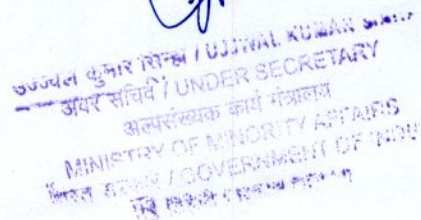 उज्ज्वल कुमार सिन्हा / UJJWAL KUMAR
अवर सचिव / UNDER SECRETARY
अल्पसंख्यक कार्य मंत्रालय
MINISTRY OF MINORITY AFFAIRS
भारत सरकार / GOVERNMENT OF INDIA